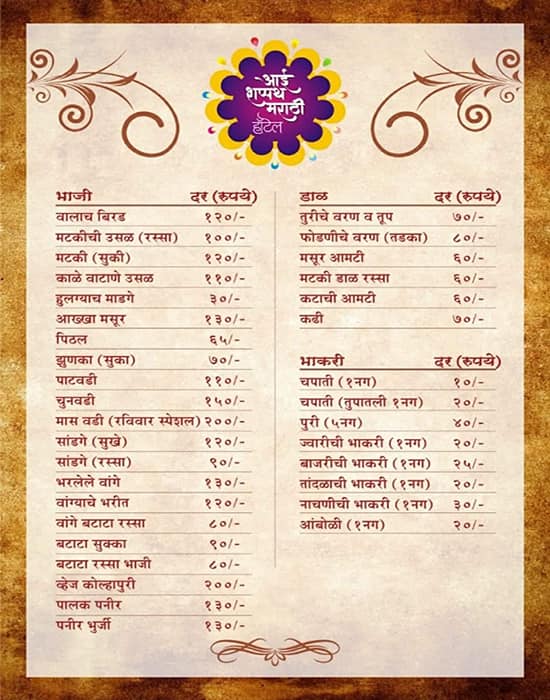 आई
शप्पथ
मराठी
हॉटेल
भाजी दर (रुपये)
वालाच बिरड १२०/-
मटकीची उसळ (रस्सा) १००/-
मटकी (सुकी) १२०/-
काळे वाटाणे उसळ ११०/-
हुलग्याच माडगे ३०/-
आख्खा मसूर १३०/-
पिठल ६५/-
झुणका (सुका) ७०/-
पाटवडी ११०/-
चुनवडी १५०/-
मास वडी (रविवार स्पेशल) २००/-
सांडगे (सुखे) १२०/-
सांडगे (रस्सा) ९०/-
भरलेले वांगे १३०/-
वांग्याचे भरीत १२०/-
वांगे बटाटा रस्सा ८०/-
बटाटा सुक्का ९०/-
बटाटा रस्सा भाजी ८०/-
व्हेज कोल्हापुरी २००/-
पालक पनीर १३०/-
पनीर भुर्जी १३०/-
डाळ दर (रुपये)
तुरीचे वरण व तूप ७०/-
फोडणीचे वरण (तडका) ८०/-
मसूर आमटी ६०/-
मटकी डाळ रस्सा ६०/-
कटाची आमटी ६०/-
कढी ७०/-
भाकरी दर (रुपये)
चपाती (१नग) १०/-
चपाती (तुपातली १नग) २०/-
पुरी (५नग) ४०/-
ज्वारीची भाकरी (१नग) २०/-
बाजरीची भाकरी (१नग) २५/-
तांदळाची भाकरी (१नग) २०/-
नाचणीची भाकरी (१नग) ३०/-
आंबोळी (१नग) २०/-